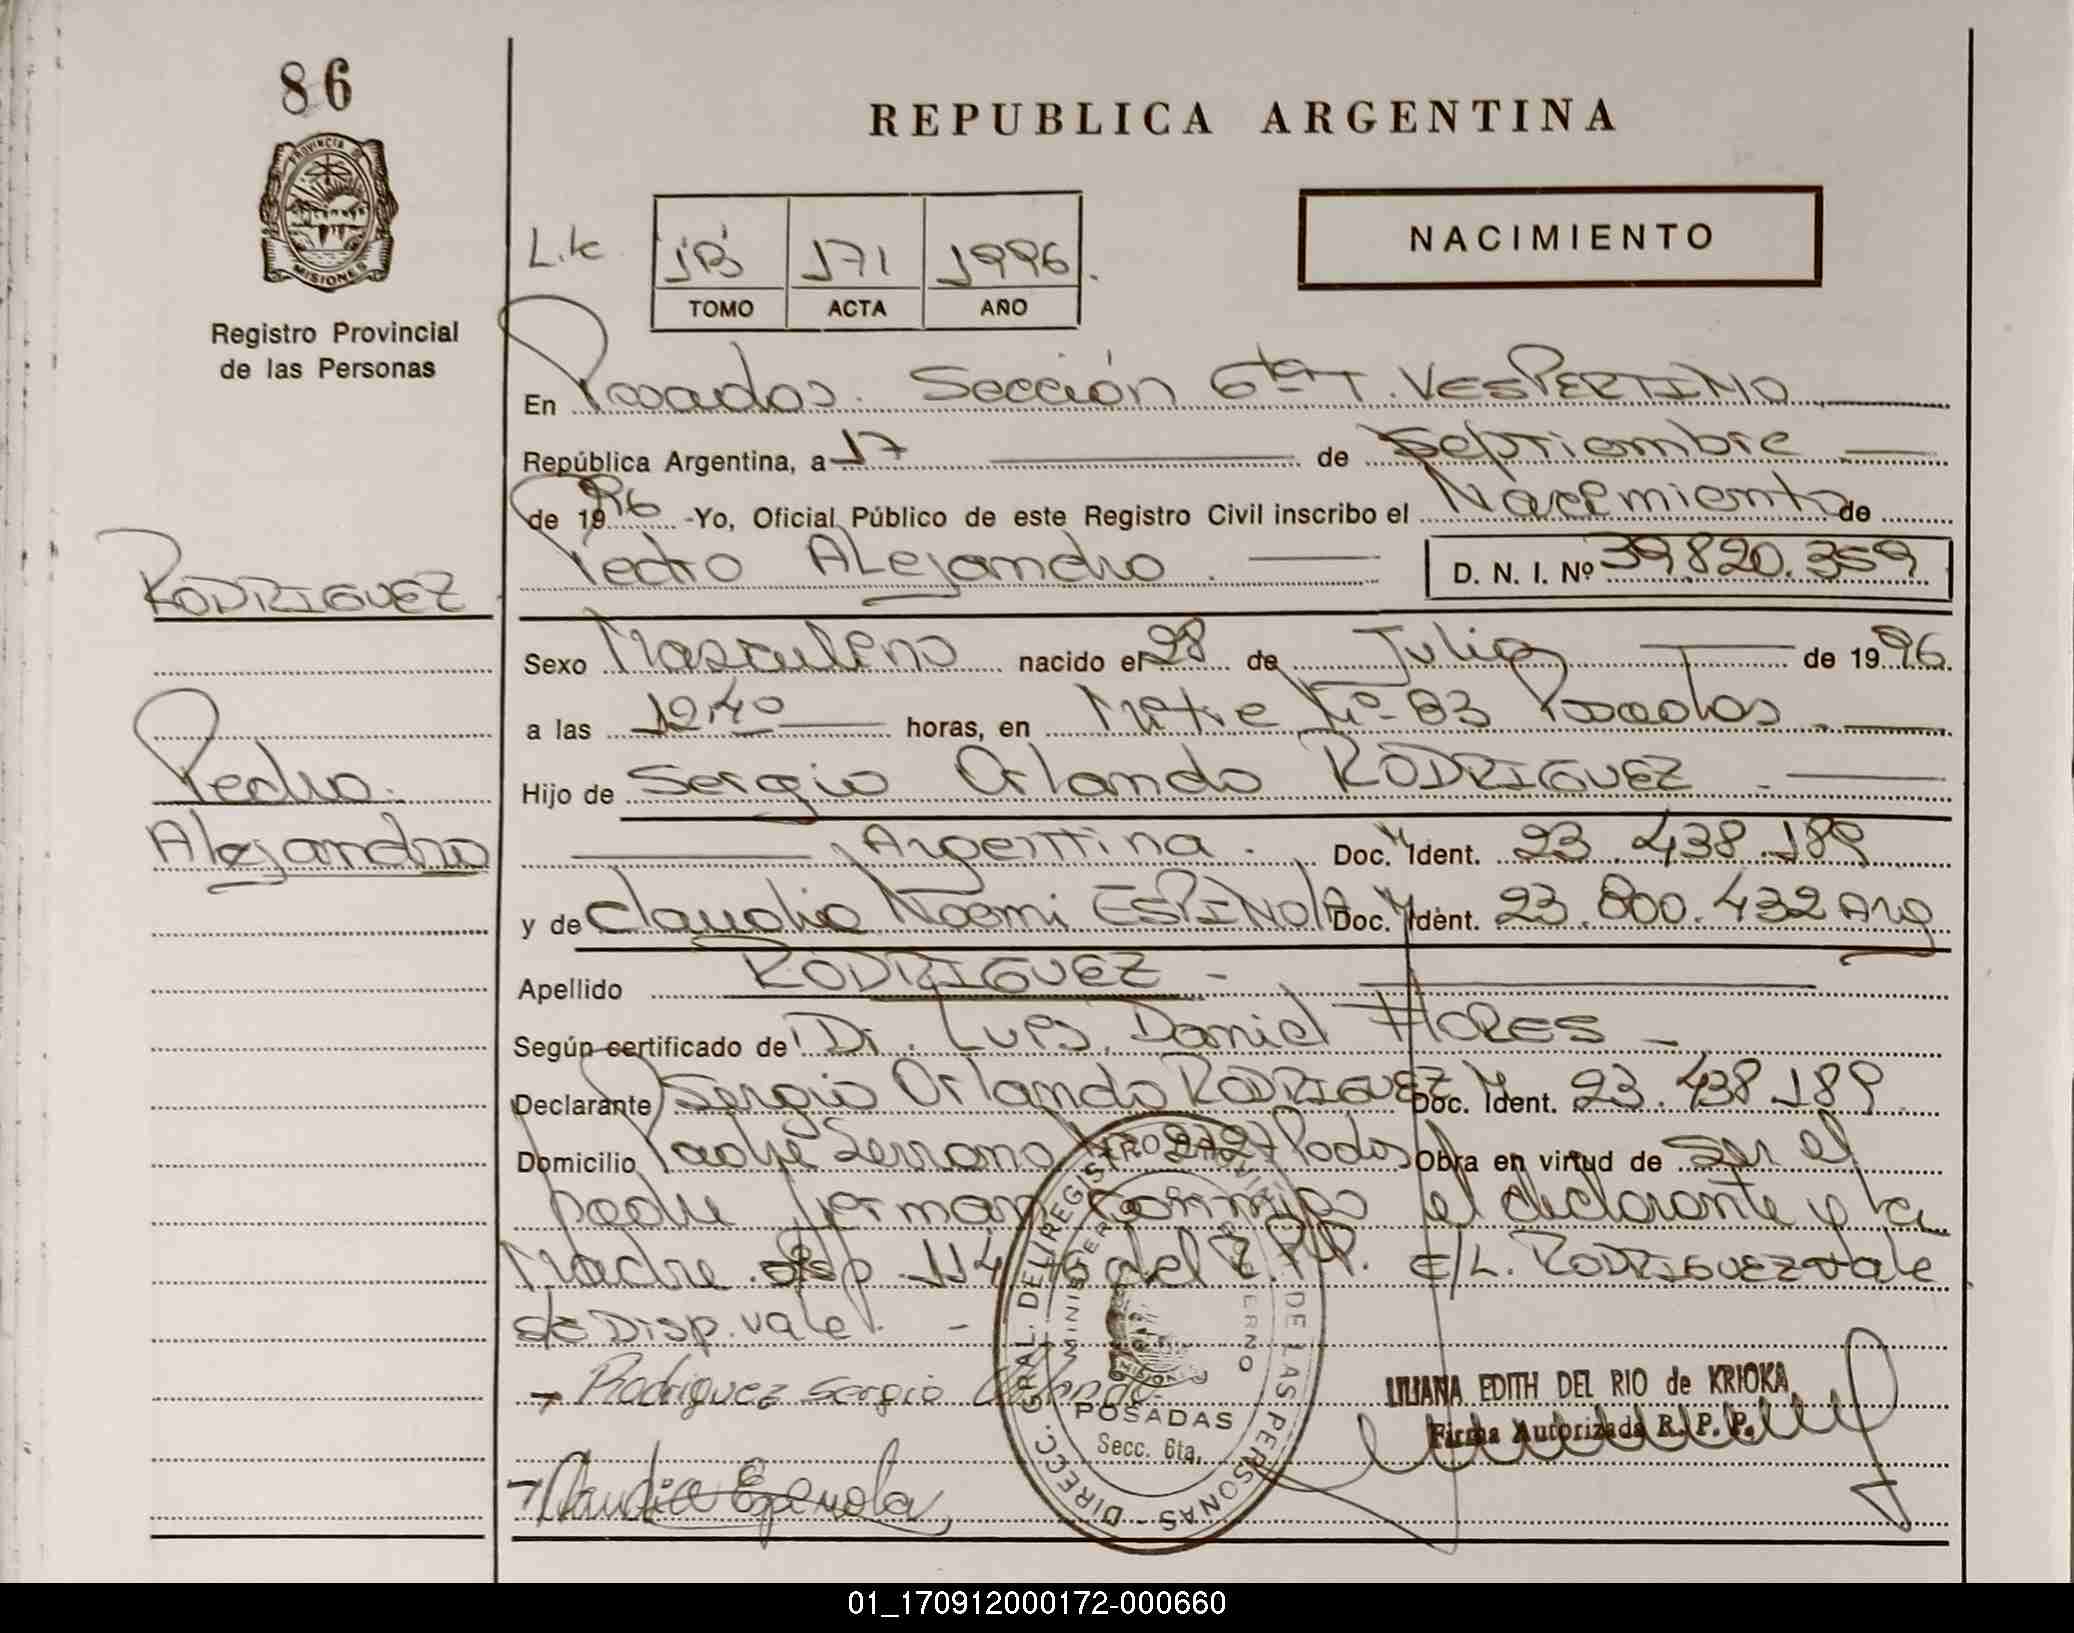 86
PROVINCIA DE
MISIONES
Registro Provincial
de las Personas
REPUBLICA ARGENTINA
NACIMIENTO
171 1996.
TOMO ACTA AÑO
En Posadas. Sección 6ta T. VESPERTINO
República Argentina, a 17 de Septiembre
de 1996 -Yo, Oficial Público de este Registro Civil inscribo el Nacimiento de
Pedro Alejandro. D. N. I. Nº 39.820.359
RODRIGUEZ
Pedro.
Alejandro
Sexo Masculino nacido el 28 de Julio de 1996.
a las horas, en Mitre Nº 83 Posadas
Hijo de Sergio Orlando RODRIGUEZ
Argentina. Doc. Ident. 23.438.189
y de Claudia Noemi ESPINOLA Doc. Ident. 23.800.432 Arg
Apellido RODRIGUEZ -
Según certificado de Dr. Luis Daniel FLORES -
Declarante Sergio Orlando RODRIGUEZ Doc. Ident. 23.438.189
Domicilio Padre Serrano 2727 Pdas Obra en virtud de ser el
padre firman conmigo el declarante y la
Madre. Disp 114/96 del R.P.P. E/L. RODRIGUEZ vale
Disp. vale. -
Rodriguez Sergio Orlando
Claudia Espinola
DIRECC. GRAL. DEL REGISTRO PROVINCIAL DE LAS PERSONAS -
MINISTERIO GOBIERNO
MISIONES
POSADAS
Secc. 6ta.
LILIANA EDITH DEL RIO de KRIOKA
Firma Autorizada R. P. P.
01_170912000172-000660